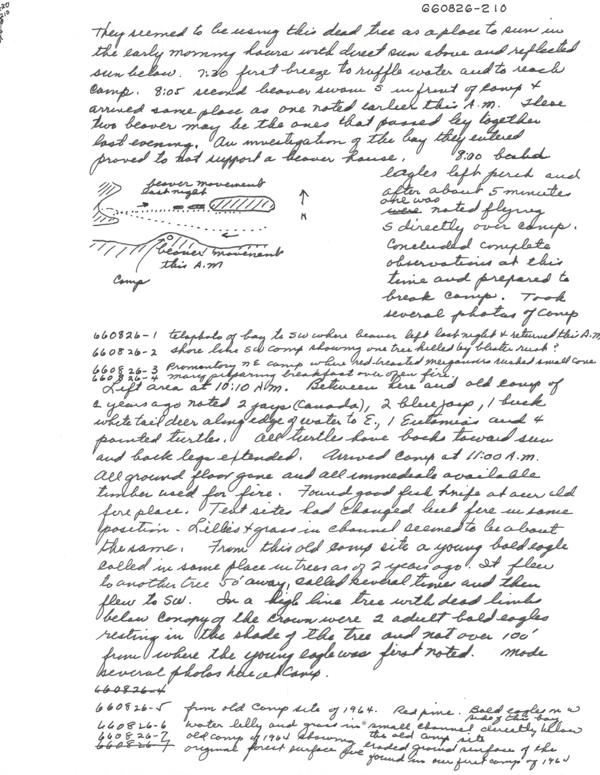 660826-210
They seemed to be using this dead tree as a place to sun in
the early morning hours with direct sun above and reflected
sun below. 7:20 first breeze to ruffle water and to reach
camp. 8:05 second beaver swam S in front of camp &
arrived same place as one noted earlier this A.M. These
two beaver may be the ones that passed by together
last evening. An investigation of the bay they entered
proved to not support a beaver house. 8:00 bald
eagles left perch and
after about 5 minutes
one was
were noted flying
S directly over camp.
Concluded complete
observations at this
time and prepared to
break camp. Took
several photos of camp
beaver movement
last night
N
beaver movement
this A.M
Camp
660826-1 telephoto of bay to SW where beaver left last night & returned this A.M
660826-2 shore line SW camp showing one tree killed by blister rust?
660826-3 Promontory NE camp where red breasted mergansers rushed small cove
660826-4 mary preparing breakfast over open fire.
Left area at 10:10 A.M. Between here and old camp of
2 years ago noted 2 jays (Canada), 2 blue jays, 1 buck
white tail deer along edge of water to E., 1 Eutamias and 4
painted turtles. All turtles have backs toward sun
and back legs extended. Arrived camp at 11:00 A.M.
All ground floor gone and all immediate available
timber used for fire. Found good fish knife at our old
fire place. Tent sites had changed but fire in same
position. Lillies & grass in channel seemed to be about
the same. From this old camp site a young bald eagle
called in same place in trees as of 2 years ago. It flew
to another tree 50' away, called several times and then
flew to SW. In a high line tree with dead limbs
below canopy of the crown were 2 adult bald eagles
resting in the shade of the tree and not over 100'
from where the young eagle was first noted. Made
several photos here at camp.
660826-4
660826-5 from old Camp site of 1964. Red pine. Bald eagles on W
side of this bay
660826-6 water lilly and grass in small channel directly below
the old camp site
660826-7 old camp of 1964 showing eroded ground surface of the
660826-7 original forest surface found in our first camp of 1964